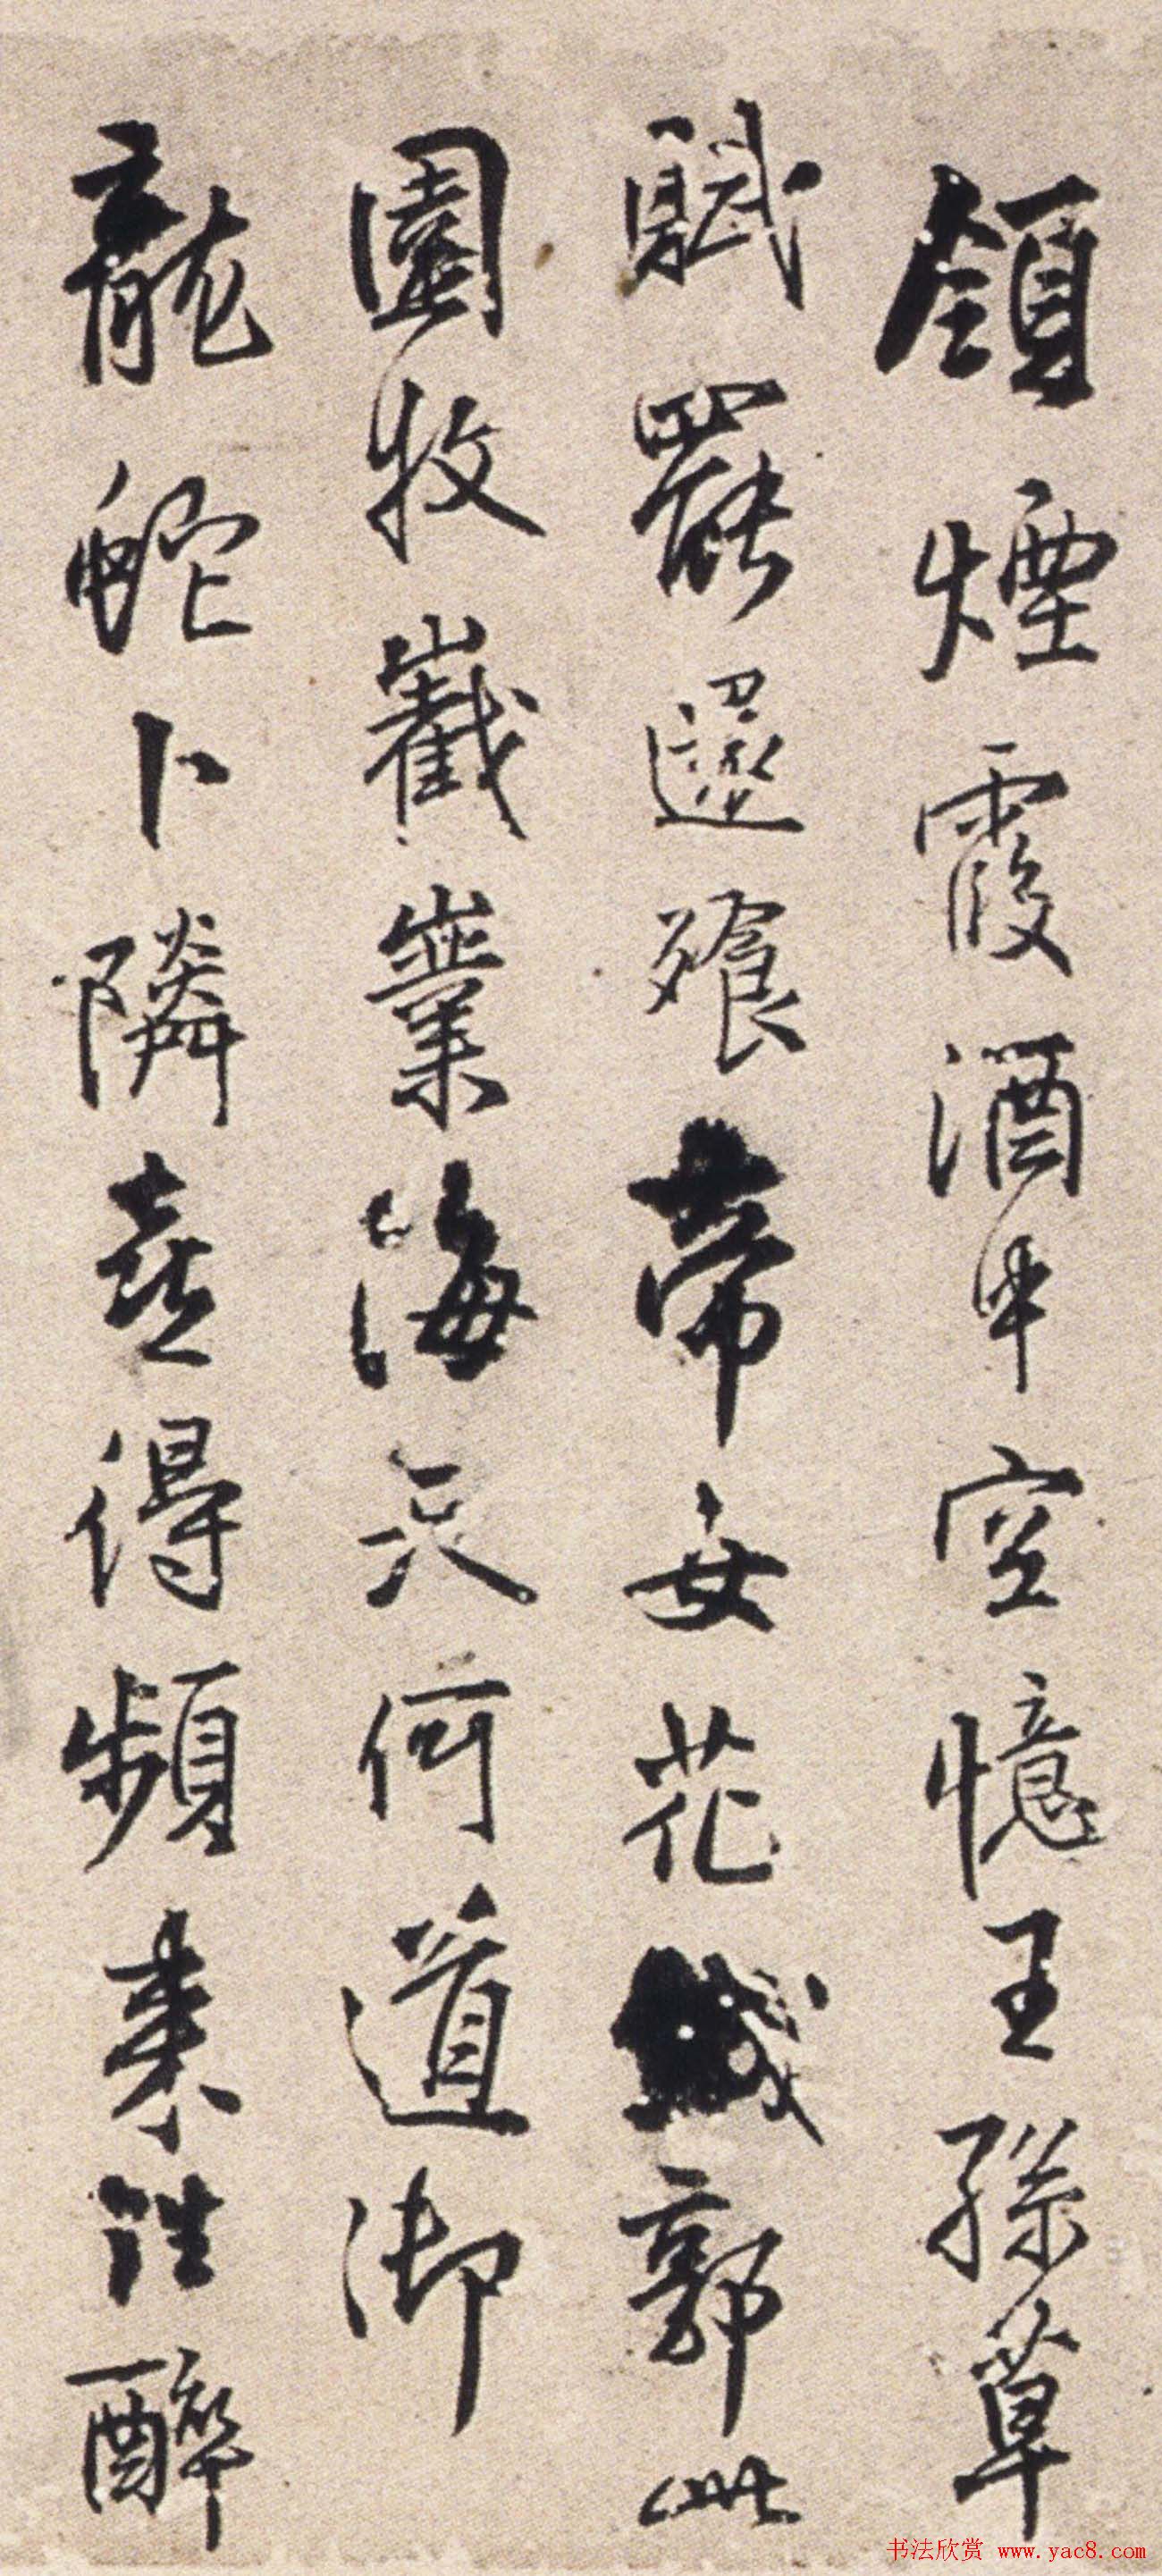 領煙霞酒中空憶王孫草
賦罷還飱帝女花城郭此
園牧截業海天何道御
龍蛇卜隣喜得頻來往醉
书法欣赏 www.yac8.com